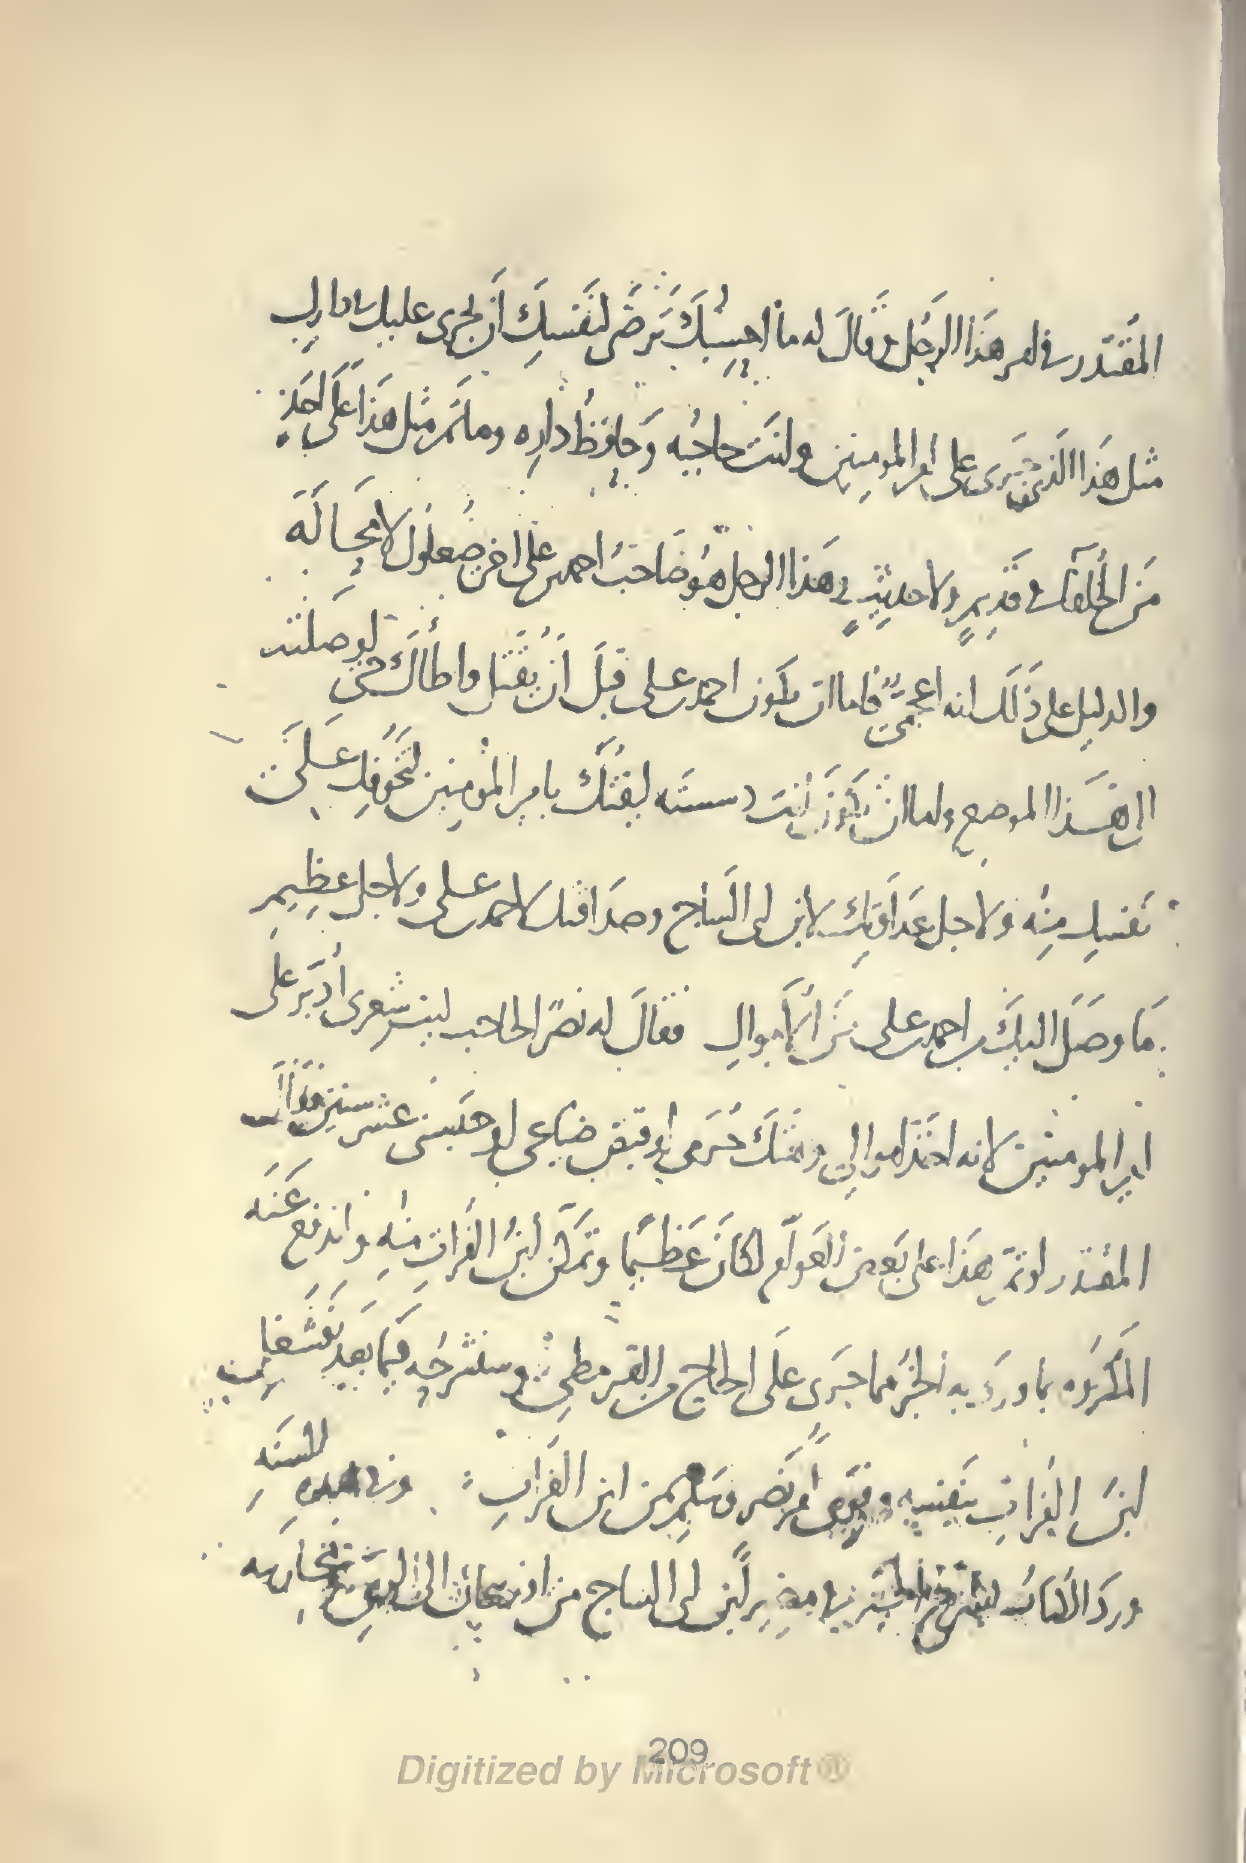 المقتدر في امر هذا الرجل وقال له ما احسبك ترضى لنفسك أن يجرى عليك في دارك
مثل هذا الذي جرى على امير المومنين وانت حاجبه وحافظ داره وما تم مثل هذا على احد
من الخلفآء في قديم ولا حديث وهذا الرجل هو صاحب احمد بن على اخي صعلوك لا محالة
والدليل على ذلك انه اعجمي فاما ان يكون احمد بن على قبل أن يقتل واطأك حتى اوصلته
الى هذا الموضع واما ان تكون أنت دسسته ليفتك بامير المومنين لتخوفك على
نفسك منه ولاجل عداوتك لابن ابي الساج وصداقتك لاحمد بن على ولاجل عظيم
ما وصل اليك من احمد بن على من الأموال فقال له نصر الحاجب ليت شعرى أدبر على
امير المومنين لانه اخذ اموالي وهتك حرمي وقبض ضياعي او حبسني عشر سنين
المقتدر لو تم هذا على بعض العوام لكان عظيما وتمكن ابن الفرات منه واندفع عنه
المكروه بما ورد به الخبر مما جرى على الحاج من القرمطي وسنشرحه فيما بعد فشغل
ابن الفرات بنفسه وقوى أمر نصر وسلم من ابن الفرات وفي هذه السنه
ورد الكتاب بمصير ابن ابي الساج من اذربيجان الى الري لمحاربه
209
Digitized by Microsoft ®